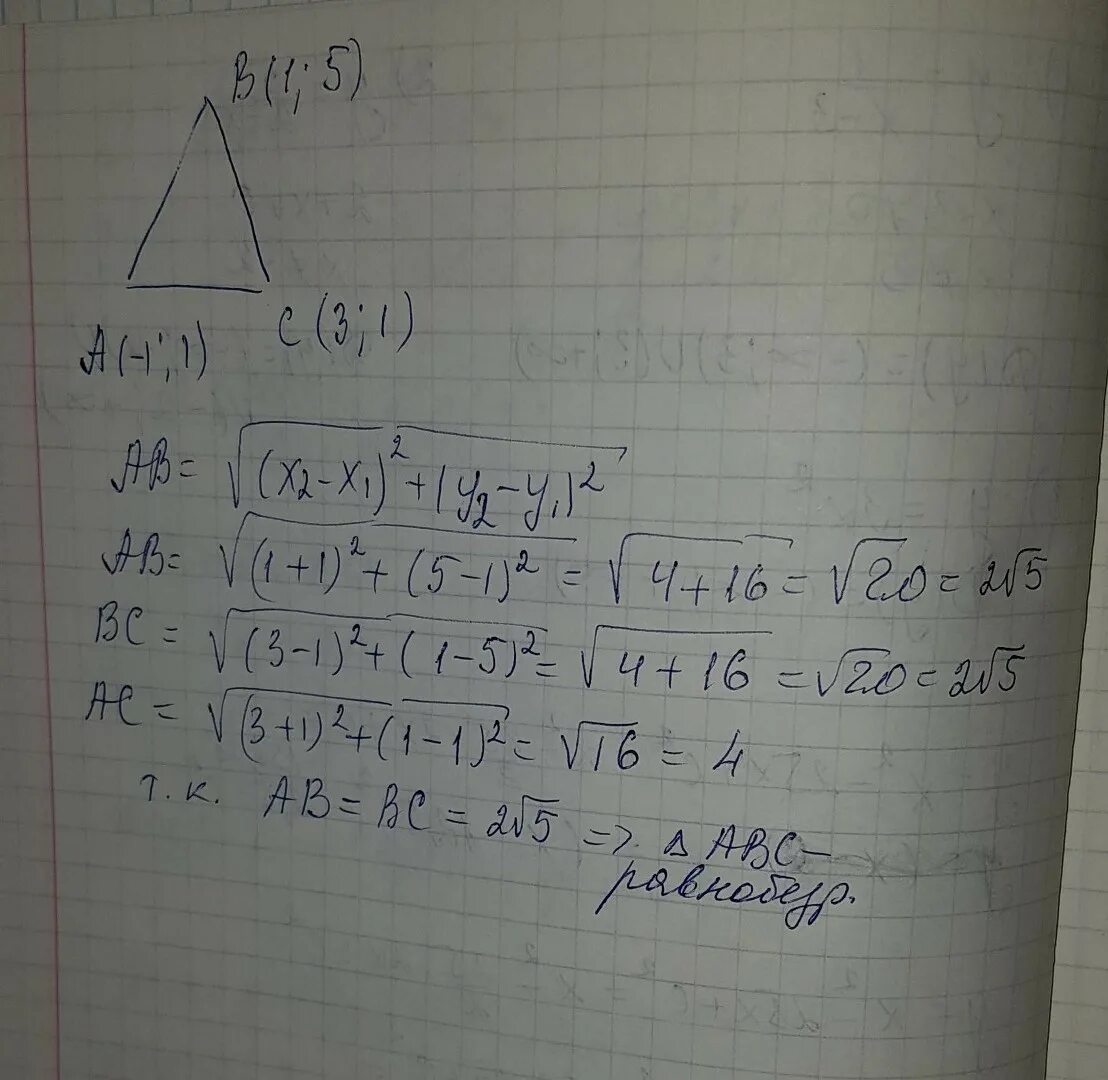 B(1; 5)
C(3; 1)
A(-1; 1)
AB = √((x₂-x₁)²+(y₂-y₁)²
AB = √((1+1)²+(5-1)²) = √(4+16) = √20 = 2√5
BC = √((3-1)²+(1-5)²) = √(4+16) = √20 = 2√5
AC = √((3+1)²+(1-1)²) = √16 = 4
т.к. AB = BC = 2√5 => △ABC –
равнобедр.